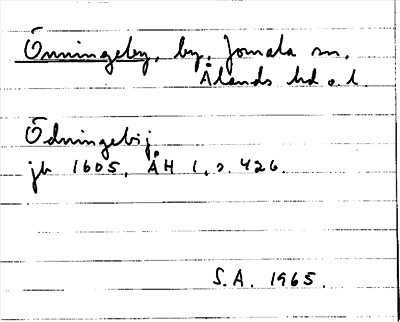 Önningeby, by, Jomala sn.
Ålands hd o. l.
Ödningebij
jb 1605, ÅH 1, s. 426.
S.A. 1965.